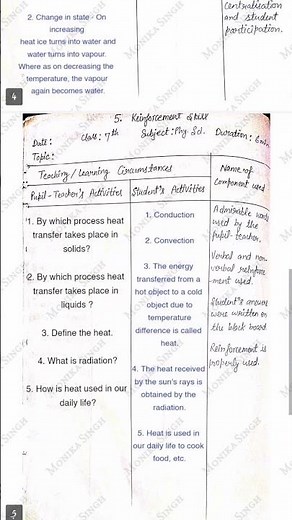 centralisation
and student
participation.
2. Change in state - On
increasing
heat ice turns into water and
water turns into vapour.
Where as on decreasing the
temperature, the vapour
again becomes water.
4
5. Reinforcement Skill
Date: Class: 7th Subject: Phy Sd. Duration: 6 min
Topic:
Teaching / Learning Circumstances
Name of
component used
Pupil-Teacher's Activities
Student's Activities
1. By which process heat
transfer takes place in
solids?
2. By which process heat
transfer takes place in
liquids ?
3. Define the heat.
4. What is radiation?
5. How is heat used in our
daily life?
1. Conduction
2. Convection
3. The energy
transferred from a
hot object to a cold
object due to
temperature
difference is called
heat.
4. The heat received
by the sun's rays is
obtained by the
radiation.
5. Heat is used in
our daily life to cook
food, etc.
Admirable words
used by the
pupil-teacher.
Verbal and non
verbal reinforce
-ment used.
Student's answers
were written on
the black board
Reinforcement is
properly used.
MONIKA SINGH
5